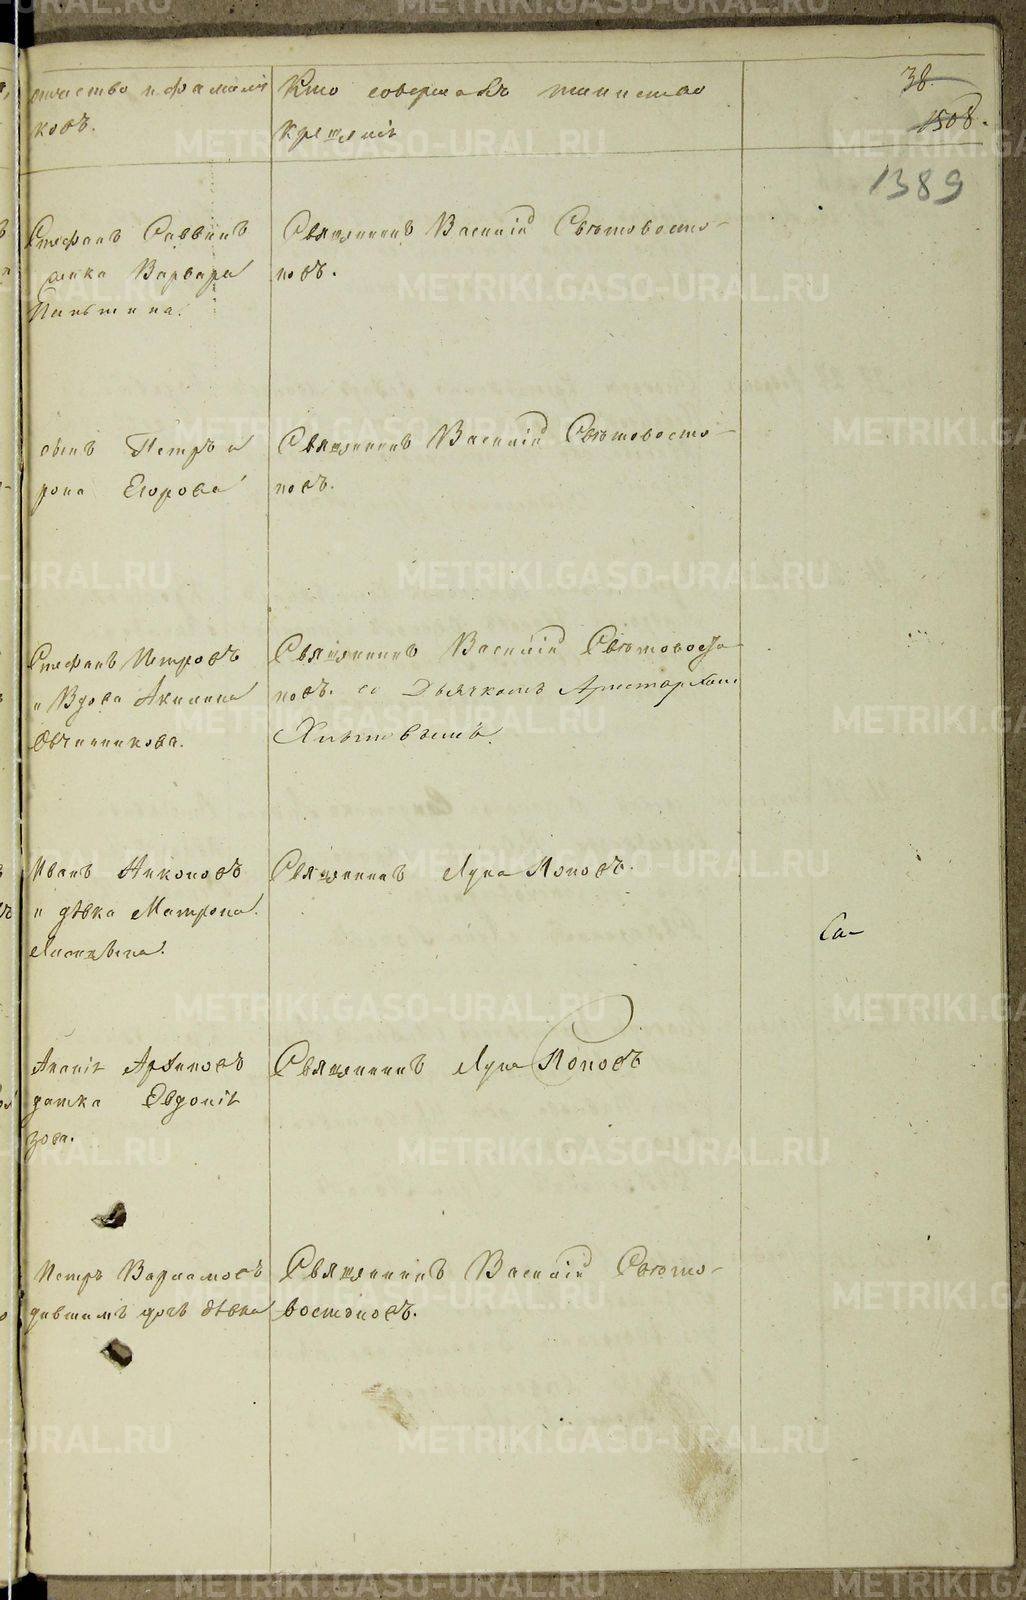 38.
1508.
1389
отчество и фамилія
ковъ.
Кто совершалъ таинство
крещенія
Стефанъ Саввинъ
Варвара
Священникъ Василій Свѣтовосто-
ковъ.
сынъ Петръ
рона Егорова
Священникъ Василій Свѣтовосто-
ковъ.
Стефанъ Петровъ
и Вдова Акилина
Овчинникова.
Священникъ Василій Свѣтовосто-
ковъ. со Дьячкомъ Аристархомъ
Иванъ Никоновъ
и дѣвка Матрона
Священникъ Лука Поповъ.
Са-
Ананій Архиповъ
датка Евдокія
зова.
Священникъ Лука Поповъ
Петръ Варламовъ
дочь дѣвка
Священникъ Василій Свѣто-
востоковъ.
METRIKI.GASO-URAL.RU